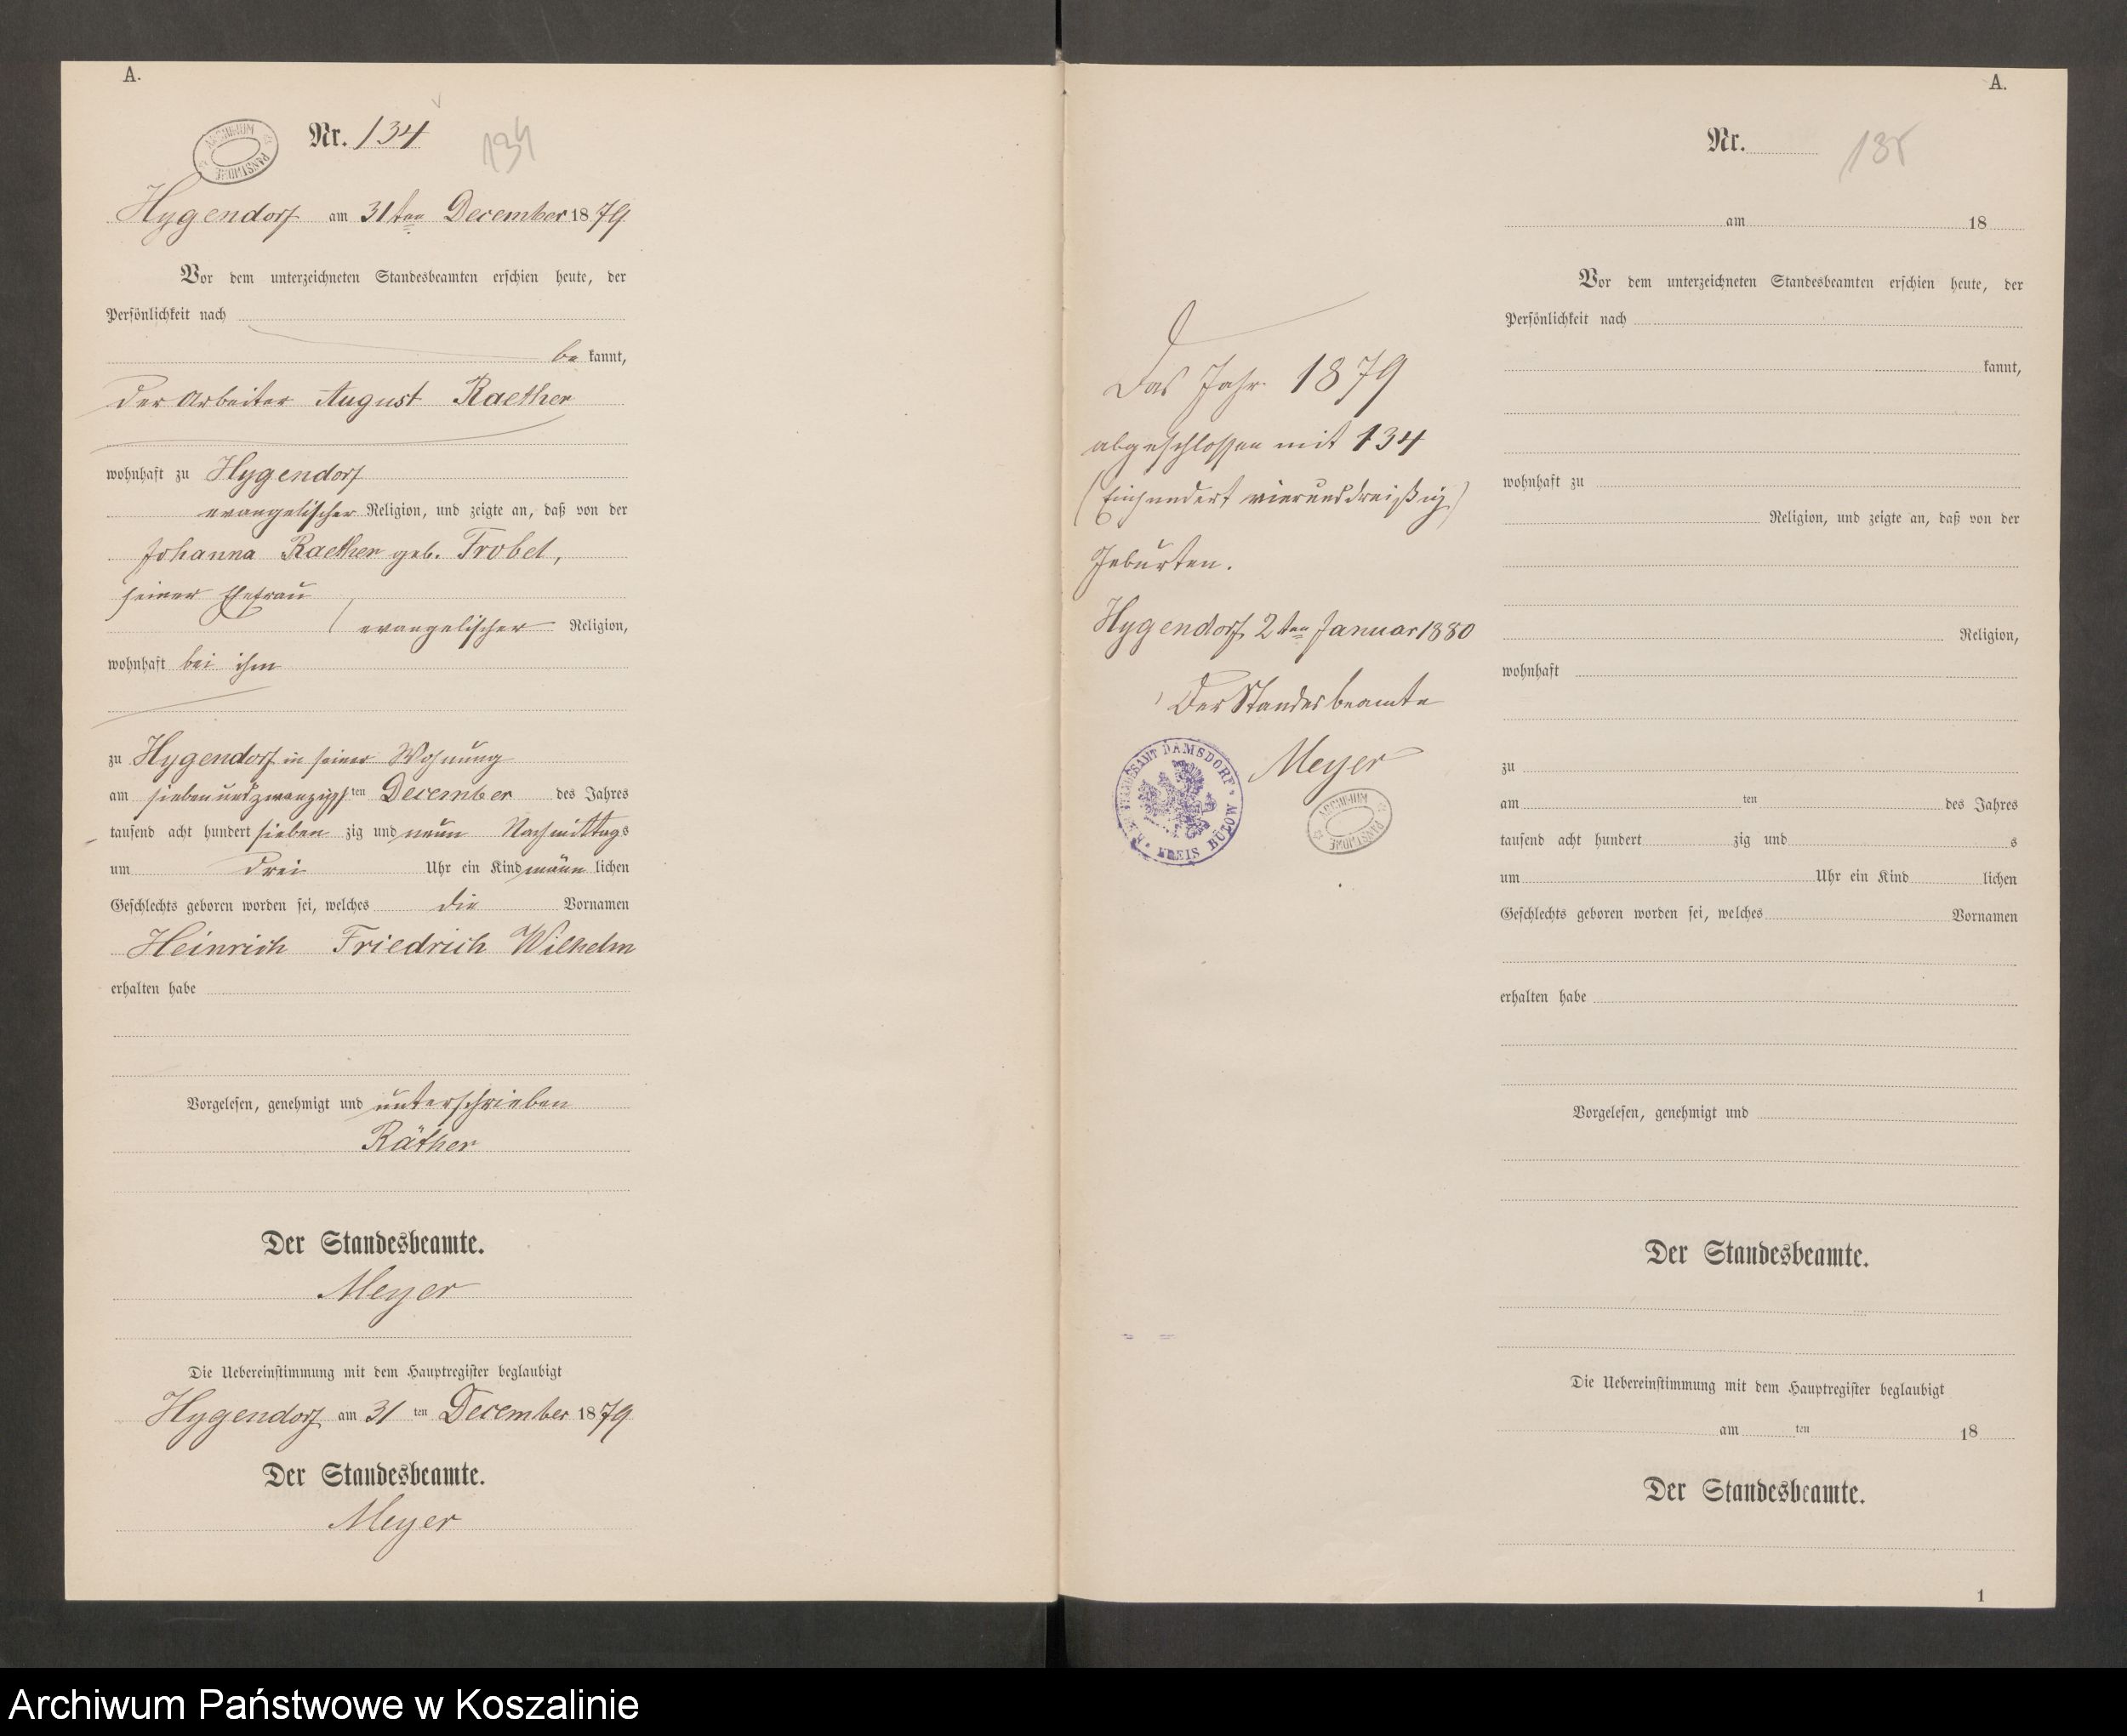 A.
Nr. 134
134
ARCHIWUM PAŃSTWOWE
Hygendorf am 31ten December 1879
Vor dem unterzeichneten Standesbeamten erschien heute, der
Persönlichkeit nach
be kannt,
der Arbeiter August Raether
wohnhaft zu Hygendorf
evangelischer Religion, und zeigte an, daß von der
Johanna Raether geb. Trobel,
seiner Ehefrau
evangelischer Religion,
wohnhaft bei ihm
zu Hygendorf in seiner Wohnung
am siebenundzwanzigsten December des Jahres
tausend acht hundert sieben zig und neun Nachmittags
um drei Uhr ein Kind männ lichen
Geschlechts geboren worden sei, welches die Vornamen
Heinrich Friedrich Wilhelm
erhalten habe
Vorgelesen, genehmigt und unterschrieben
Räther
Der Standesbeamte.
Meyer
Die Uebereinstimmung mit dem Hauptregister beglaubigt
Hygendorf am 31 ten December 1879
Der Standesbeamte.
Meyer
Das Jahr 1879
abgeschlossen mit 134
(Einhundert vierunddreißig)
Geburten.
Hygendorf 2ten Januar 1880
Der Standesbeamte
Meyer
STANDESAMT DAMSDORF KREIS BÜTOW
ARCHIWUM PAŃSTWOWE
A.
Nr.
135
am 18
Vor dem unterzeichneten Standesbeamten erschien heute, der
Persönlichkeit nach
kannt,
wohnhaft zu
Religion, und zeigte an, daß von der
Religion,
wohnhaft
zu
am ten des Jahres
tausend acht hundert zig und s
um Uhr ein Kind lichen
Geschlechts geboren worden sei, welches Vornamen
erhalten habe
Vorgelesen, genehmigt und
Der Standesbeamte.
Die Uebereinstimmung mit dem Hauptregister beglaubigt
am ten 18
Der Standesbeamte.
1
Archiwum Państwowe w Koszalinie